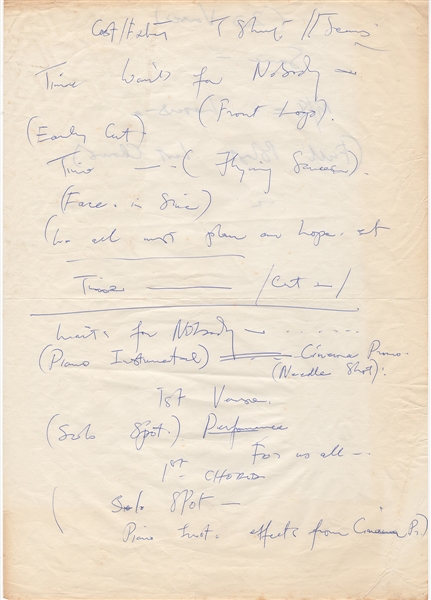 T Shirt / Jeans
Time Waits for Nobody —
(Front Logo).
(Early Cut)
Time — — (Flying Saucer).
(Face in
(We all must plan our hopes
Time ——— / Cut — /
waits for Nobody — . . . . . .
(Piano Instrumental) ——— Cinema Piano.
(Needle Shot).
1st Verse.
(Solo Spot.) Performance
For us all —
1st CHORD
( Solo SPot —
Piano Inst. effects from Cinema P.)